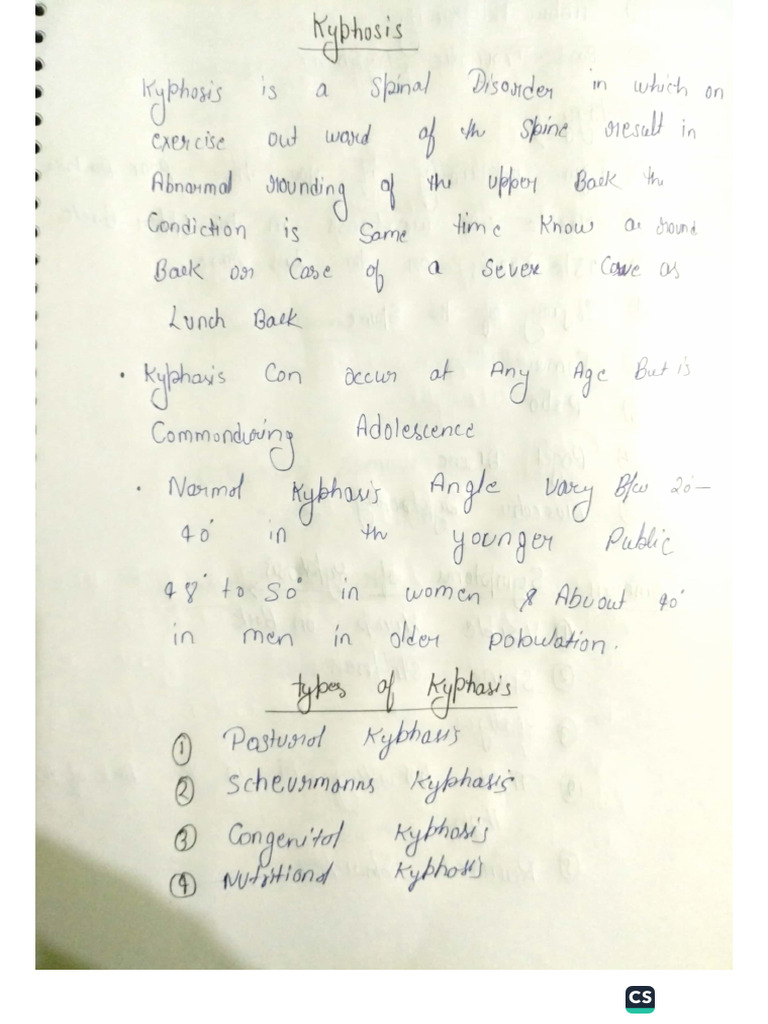 Kyphosis
Kyphosis is a Spinal Disorder in which on
exercise out ward of th Spine result in
Abnormal rounding of the upper Back th
Condiction is Same time Know as round
Back or Case of a Sever Curve as
Lunch Back
• Kyphasis Con occur at Any Age But is
Commonduring Adolescence
• Narmol Kyphasis Angle vary B/w 20-
40° in th younger Public
48° to 50° in women & Abuout 40°
in men in older poboulation.
types of Kyphasis
① Pasturol Kyphasis
② Scheurmanns Kyphasis
③ Congenitol Kyphosis
④ Nutritiond Kyphosis
CS